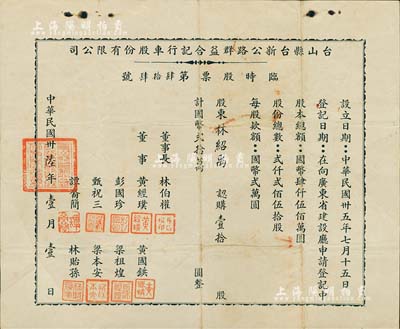 台山縣台新公路群益合記行車股份有限公司
臨時股票第肆拾肆號
設立日期：中華民國卅五年七月十五日
登記日期：在向廣東省建設廳申請登記中
股本總額：國幣肆仟伍佰萬圓
股份總數：弍仟弍佰伍拾股
每股款額：國幣弍萬圓
股東林紹禹 認購壹拾股
計國幣弍拾萬圓整
董事長 林伯權
董事 黃經璜 黃國鎮
彭國珍 梁祖煌
甄祝三 梁本安
譚裔簡 林貽孫
中華民國卅陸年壹月壹日